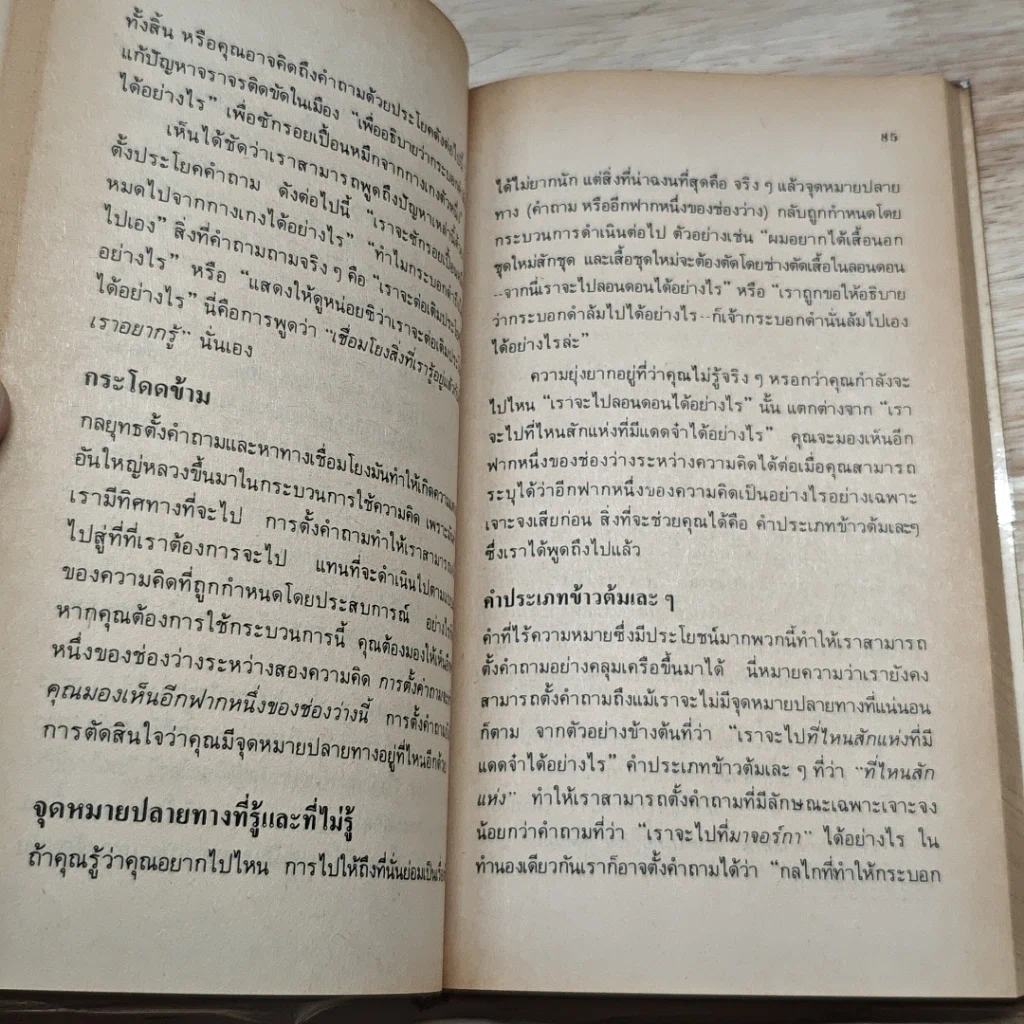 ทั้งสิ้น หรือคุณอาจคิดถึงคำถามด้วยประโยคดังต่อไปนี้
แก้ปัญหาจราจรติดขัดในเมือง "เพื่ออธิบายว่ากระบอกดำ
ได้อย่างไร" เพื่อซักรอยเปื้อนหมึกจากกางเกงตัวหนึ่ง
เห็นได้ชัดว่าเราสามารถพูดถึงปัญหาเหล่านี้ด้วย
ตั้งประโยคคำถาม ดังต่อไปนี้ "เราจะซักรอยเปื้อน
หมดไปจากกางเกงได้อย่างไร" "ทำไมกระบอกดำถึง
ไปเอง" สิ่งที่คำถามถามจริง ๆ คือ "เราจะต่อเติมประโยค
อย่างไร" หรือ "แสดงให้ดูหน่อยซิว่าเราจะต่อเติมประ
ได้อย่างไร" นี่คือการพูดว่า "เชื่อมโยงสิ่งที่เรารู้อยู่แล้ว
เราอยากรู้" นั่นเอง
กระโดดข้าม
กลยุทธตั้งคำถามและหาทางเชื่อมโยงมันทำให้เกิดความ
อันใหญ่หลวงขึ้นมาในกระบวนการใช้ความคิด เพราะ
เรามีทิศทางที่จะไป การตั้งคำถามทำให้เราสามารถ
ไปสู่ที่ที่เราต้องการจะไป แทนที่จะดำเนินไปตาม
ของความคิดที่ถูกกำหนดโดยประสบการณ์
หากคุณต้องการใช้กระบวนการนี้ คุณต้องมองให้เห็นอีก
หนึ่งของช่องว่างระหว่างสองความคิด การตั้งคำถาม
คุณมองเห็นอีกฟากหนึ่งของช่องว่างนี้ การตั้งคำถาม
การตัดสินใจว่าคุณมีจุดหมายปลายทางอยู่ที่ไหนอีกด้วย
จุดหมายปลายทางที่รู้และที่ไม่รู้
ถ้าคุณรู้ว่าคุณอยากไปไหน การไปให้ถึงที่นั่นย่อมเป็นเรื่อง
85
ได้ไม่ยากนัก แต่สิ่งที่น่าฉงนที่สุดคือ จริง ๆ แล้วจุดหมายปลาย
ทาง (คำถาม หรืออีกฟากหนึ่งของช่องว่าง) กลับถูกกำหนดโดย
กระบวนการดำเนินต่อไป ตัวอย่างเช่น "ผมอยากได้เสื้อนอก
ชุดใหม่สักชุด และเสื้อชุดใหม่จะต้องตัดโดยช่างตัดเสื้อในลอนดอน
--จากนี่เราจะไปลอนดอนได้อย่างไร" หรือ "เราถูกขอให้อธิบาย
ว่ากระบอกดำล้มไปได้อย่างไร--ก็เจ้ากระบอกดำนั่นล้มไปเอง
ได้อย่างไรล่ะ"
ความยุ่งยากอยู่ที่ว่าคุณไม่รู้จริง ๆ หรอกว่าคุณกำลังจะ
ไปไหน "เราจะไปลอนดอนได้อย่างไร" นั้น แตกต่างจาก "เรา
จะไปที่ไหนสักแห่งที่มีแดดจ้าได้อย่างไร" คุณจะมองเห็นอีก
ฟากหนึ่งของช่องว่างระหว่างความคิดได้ต่อเมื่อคุณสามารถ
ระบุได้ว่าอีกฟากหนึ่งของความคิดเป็นอย่างไรอย่างเฉพาะ
เจาะจงเสียก่อน สิ่งที่จะช่วยคุณได้คือ คำประเภทข้าวต้มเละๆ
ซึ่งเราได้พูดถึงไปแล้ว
คำประเภทข้าวต้มเละ ๆ
คำที่ไร้ความหมายซึ่งมีประโยชน์มากพวกนี้ทำให้เราสามารถ
ตั้งคำถามอย่างคลุมเครือขึ้นมาได้ นี่หมายความว่าเรายังคง
สามารถตั้งคำถามถึงแม้เราจะไม่มีจุดหมายปลายทางที่แน่นอน
ก็ตาม จากตัวอย่างข้างต้นที่ว่า "เราจะไปที่ไหนสักแห่งที่มี
แดดจ้าได้อย่างไร" คำประเภทข้าวต้มเละ ๆ ที่ว่า "ที่ไหนสัก
แห่ง" ทำให้เราสามารถตั้งคำถามที่มีลักษณะเฉพาะเจาะจง
น้อยกว่าคำถามที่ว่า "เราจะไปที่มาจอร์กา" ได้อย่างไร ใน
ทำนองเดียวกันเราก็อาจตั้งคำถามได้ว่า "กลไกที่ทำให้กระบอก